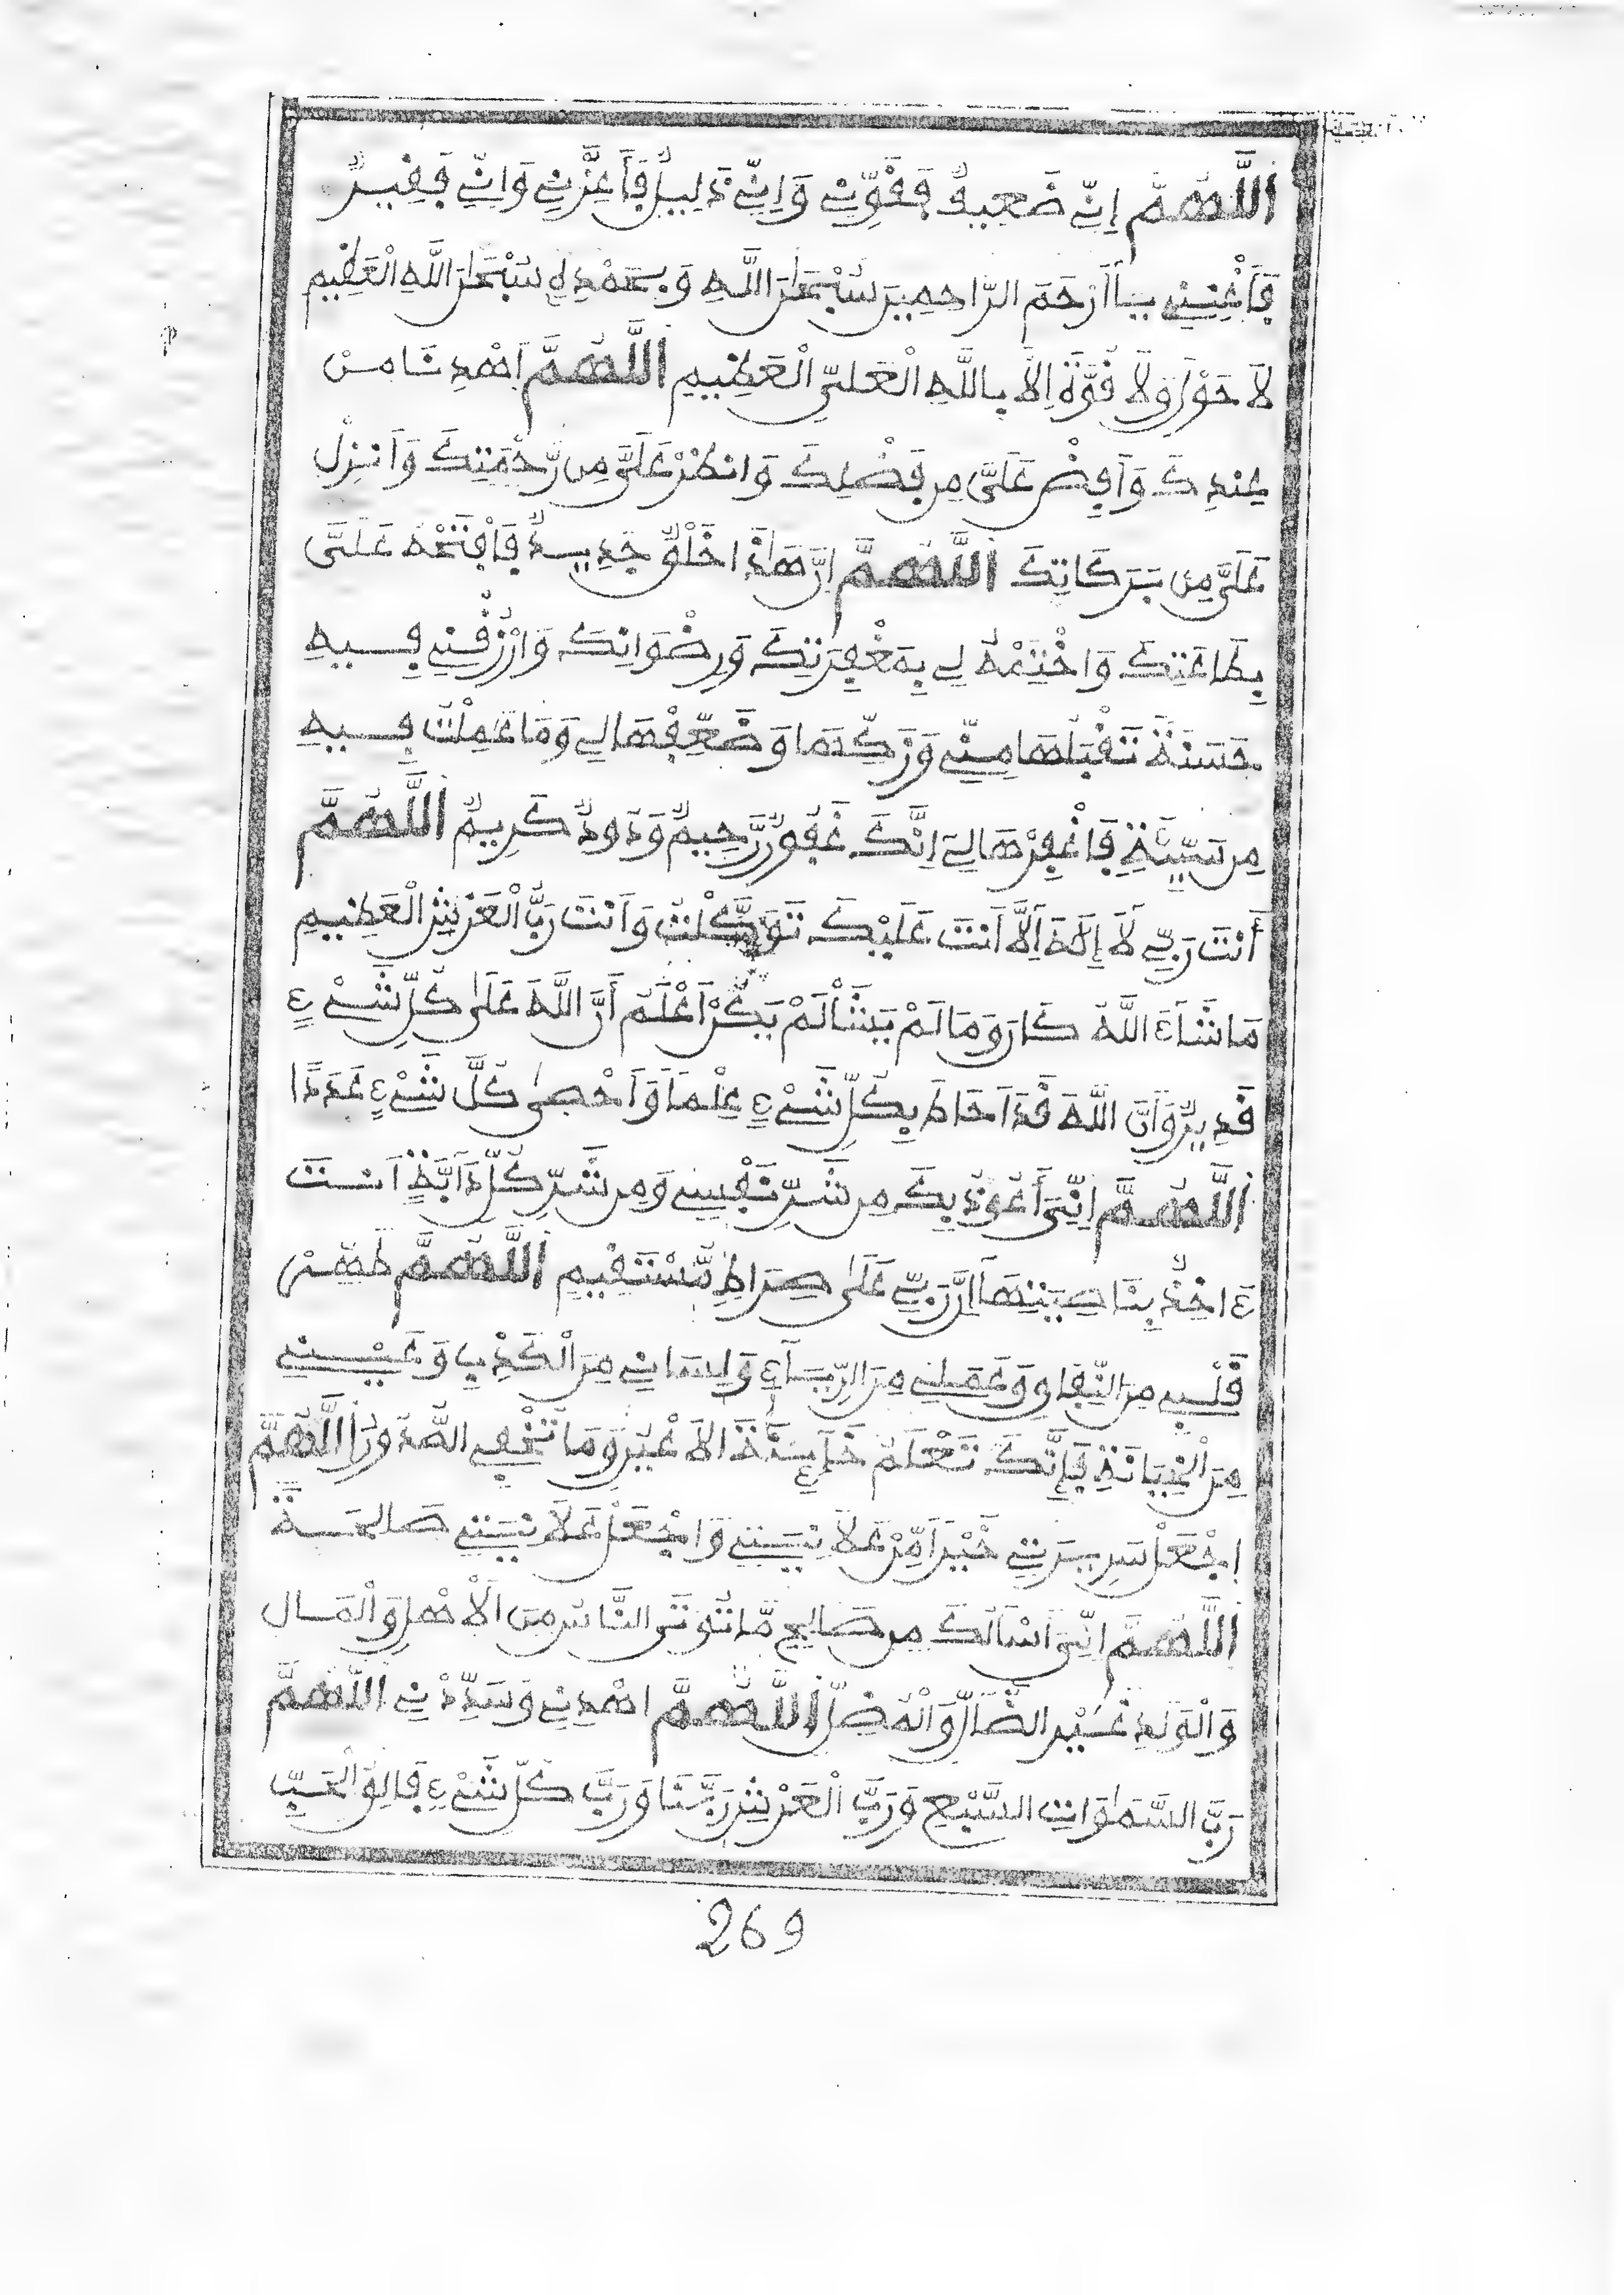 اَللَّهُمَّ إِنِّي ضَعِيفٌ فَقَوِّنِي وَإِنِّي ذَلِيلٌ فَأَعِزَّنِي وَإِنِّي فَقِيرٌ
فَأَغْنِنِي يَا أَرْحَمَ الرَّاحِمِينَ سُبْحَانَ اللَّهِ وَبِحَمْدِهِ سُبْحَانَ اللَّهِ الْعَظِيمِ
لَا حَوْلَ وَلَا قُوَّةَ إِلَّا بِاللَّهِ الْعَلِيِّ الْعَظِيمِ اَللَّهُمَّ اَهْدِنَا مِنْ
عِنْدِكَ وَأَفِضْ عَلَيَّ مِن فَضْلِكَ وَانْظُرْ عَلَيَّ مِن رَّحْمَتِكَ وَأَنزِلْ
عَلَيَّ مِن بَرَكَاتِكَ اَللَّهُمَّ إِنَّ هَذَا خَلْقٌ جَدِيدٌ فَافْتَحْهُ عَلَيَّ
بِطَاعَتِكَ وَاخْتِمْهُ لِي بِمَغْفِرَتِكَ وَرِضْوَانِكَ وَارْزُقْنِي فِيهِ
حَسَنَةً تَقْبَلُهَا مِنِّي وَزَكِّهَا وَضَعِّفْهَا لِي وَمَا عَمِلْتُ فِيهِ
مِن سَيِّئَةٍ فَاغْفِرْهَا لِي إِنَّكَ غَفُورٌ رَّحِيمٌ وَدُودٌ كَرِيمٌ اَللَّهُمَّ
أَنْتَ رَبِّي لَا إِلَهَ إِلَّا أَنْتَ عَلَيْكَ تَوَكَّلْتُ وَأَنْتَ رَبُّ الْعَرْشِ الْعَظِيمِ
مَا شَاءَ اللَّهُ كَانَ وَمَا لَمْ يَشَأْ لَمْ يَكُنْ أَعْلَمُ أَنَّ اللَّهَ عَلَى كُلِّ شَيْءٍ
قَدِيرٌ وَأَنَّ اللَّهَ قَدْ أَحَاطَ بِكُلِّ شَيْءٍ عِلْمًا وَأَحْصَى كُلَّ شَيْءٍ عَدَدًا
اَللَّهُمَّ إِنِّي أَعُوذُ بِكَ مِن شَرِّ نَفْسِي وَمِن شَرِّ كُلِّ دَآبَّةٍ أَنْتَ
ءَاخِذٌ بِنَاصِيَتِهَا إِنَّ رَبِّي عَلَى صِرَاطٍ مُّسْتَقِيمٍ اَللَّهُمَّ طَهِّرْ
قَلْبِي مِنَ النِّفَاقِ وَعَمَلِي مِنَ الرِّيَاءِ وَلِسَانِي مِنَ الْكَذِبِ وَعَيْنِي
مِنَ الْخِيَانَةِ فَإِنَّكَ تَعْلَمُ خَآئِنَةَ الْأَعْيُنِ وَمَا تُخْفِي الصُّدُورُ اَللَّهُمَّ
اِجْعَلْ سَرِيرَتِي خَيْرًا مِّنْ عَلَانِيَتِي وَاجْعَلْ عَلَانِيَتِي صَالِحَةً
اَللَّهُمَّ إِنِّي أَسْأَلُكَ مِن صَالِحِ مَّا تُوتِي النَّاسَ مِنَ الْأَهْلِ وَالْمَالِ
وَالْوَلَدِ غَيْرِ الضَّالِّ وَالْمُضِلِّ اَللَّهُمَّ اهْدِنِي وَسَدِّدْنِي اَللَّهُمَّ
رَبَّ السَّمَوَاتِ السَّبْعِ وَرَبَّ الْعَرْشِ رَبَّنَا وَرَبَّ كُلِّ شَيْءٍ فَالِقَ الْحَبِّ
269